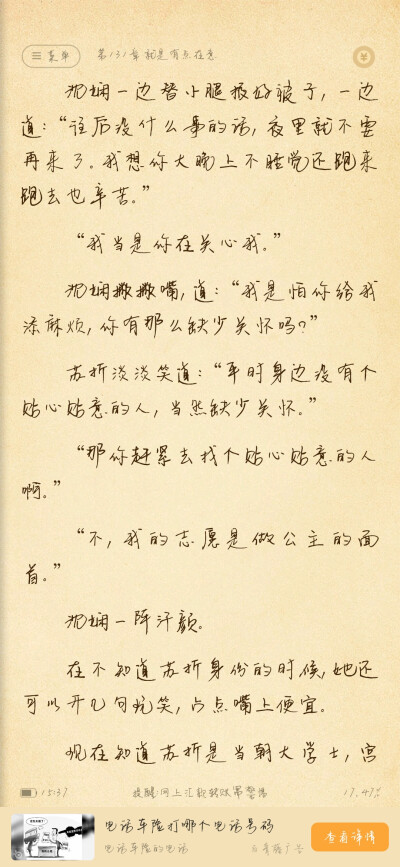 菜单
第131章就是有点在意
沈娴一边替小腿掖好被子，一边
道：“往后没什么事的话，夜里就不要
再来了。我想你大晚上不睡觉还跑来
跑去也辛苦。”
“我当是你在关心我。”
沈娴撇撇嘴，道：“我是怕你给我
添麻烦，你有那么缺少关怀吗？”
苏折淡淡笑道：“平时身边没有个
贴心贴意的人，当然缺少关怀。”
“那你赶紧去找个贴心贴意的人
啊。”
“不，我的志愿是做公主的面
首。”
沈娴一阵汗颜。
在不知道苏折身份的时候，她还
可以开几句玩笑，占点嘴上便宜。
现在知道苏折是当朝大学士，宫
15:37
提醒:网上汇款转账需警惕
17.47%
电话车险打哪个电话号码
电话车险的电话
广告
查看详情